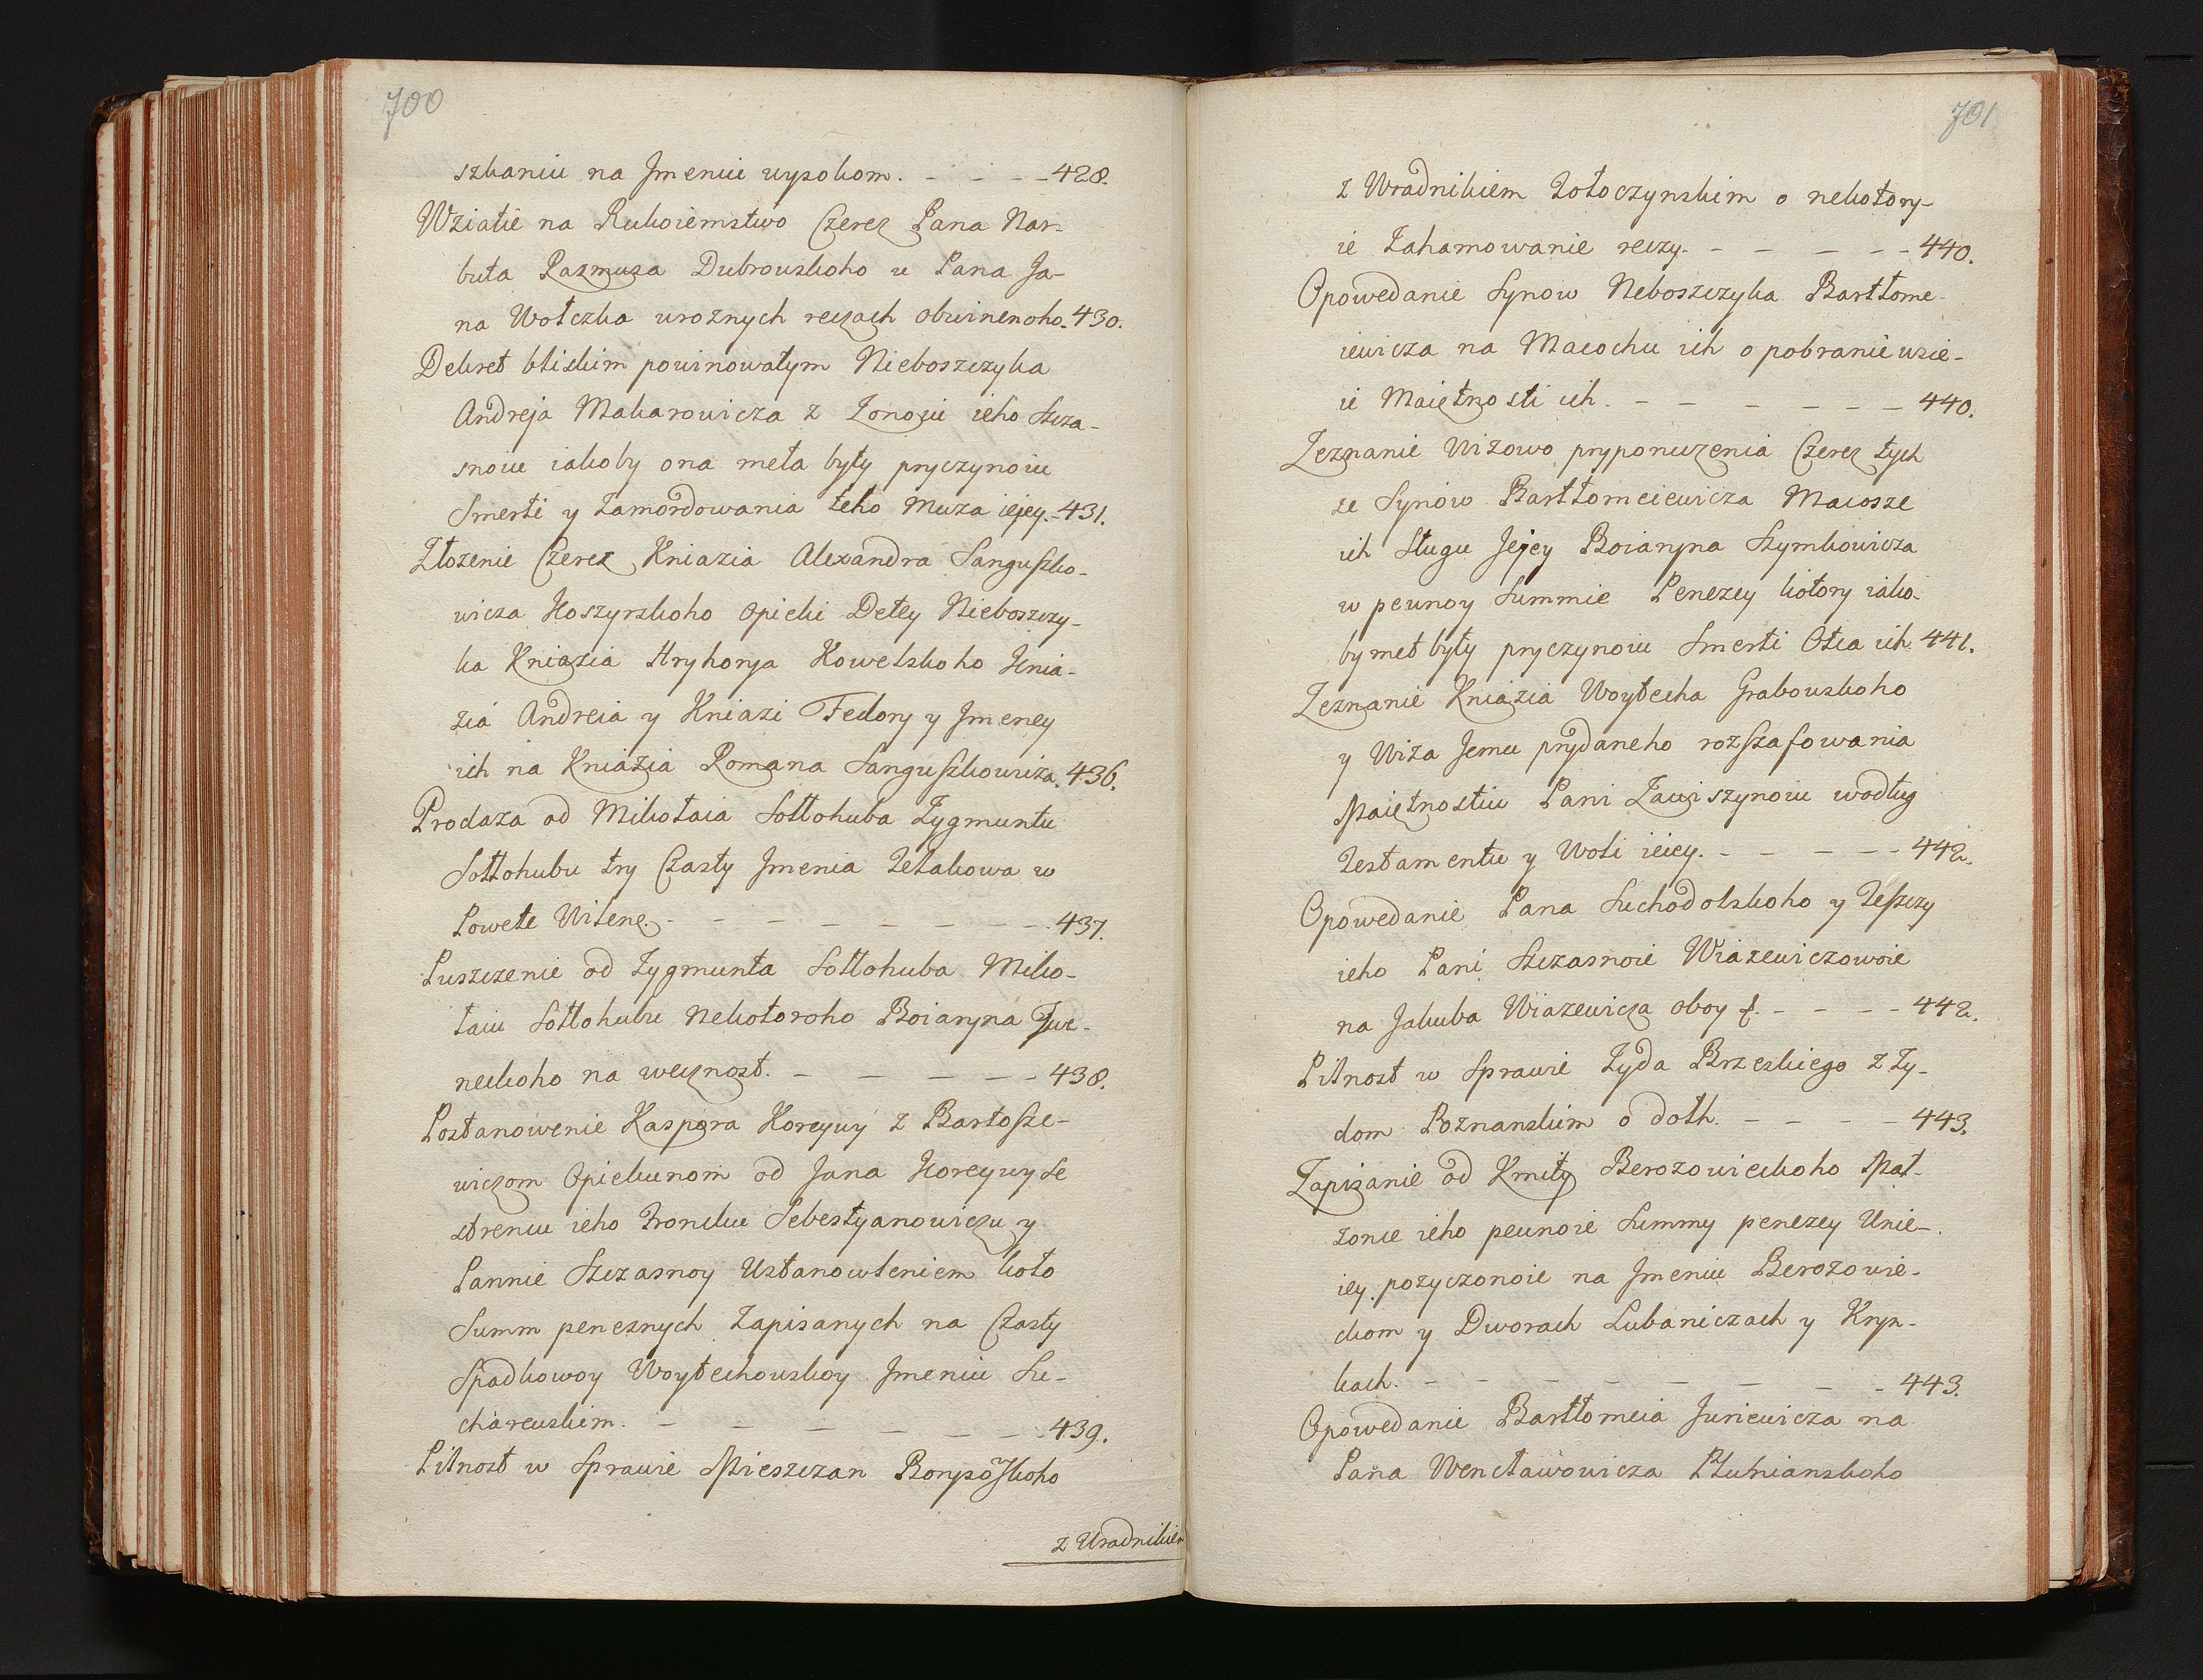 700
szkaniu na Jmeniu wysokom. - - - - 428.
Wziatie na Rukoiemstwo Czerez Pana Nar-
buta Razmusa Dubrouskoho u Pana Ja-
na Wołczka urożnych reczach obwinenoho. 430.
Dekret bliskim powinowatym Nieboszczyka
Andreja Makarowicza z Zonoju ieho Szcza-
snoiu iakoby ona meła były pryczynoiu
Smerti y zamordowania teho Muza iejey. - 431.
Złozenie Czerez Kniazia Alexandra Sanguszko-
wicza Koszyrskoho Opieki Detey Nieboszczy-
ka Kniazia Hryhorya Kowelskoho Knia-
zia Andreia y Kniazi Fedory y Jmeney
ich na Kniazia Romana Sanguszkowicza. 436.
Prodaza od Mikołaia Sołłohuba Zygmuntu
Sołłohubu try Czasty Jmenia Zetakowa w
Powete Wilene. - - - - - - - - 437.
Puszczenie od Zygmunta Sołłohuba Miko-
łaiu Sołłohubu Nekotoroho Boiaryna
neckoho na wecznost. - - - - - - 438.
Postanowenie Kaspera Koreywy z Bartosze-
wiczom Opiekunom od Jana Koreywy Se
streniu ieho Froncku Sebestyanowiczu y
Pannie Szczasnoy Ustanowleniem koło
Summ peneznych Zapisanych na Czasty
Spadkowoy Woytechouskoy Jmeniu Su-
chareuskim. - - - - - - - 439.
Pilnost w Sprawie Mieszczan Borysowskoho
z Uradnikiem
701
z Wradnikiem Tołoczynskim o nekotory-
ie Zahamowanie reczy. - - - - - 440.
Opowedanie Synow Neboszczyka Bartłome-
iewicza na Macochu ich o pobranie wsie-
ie Maiętnosti ich. - - - - - - - 440.
Zeznanie Wizowo pryponuczenia Czerez tych
ze Synów Bartłomeiewicza Macosze
ich Sługu Jejey Boiaryna Szymkowicza
w peunoy Summie Penezey kotory iako-
by meł były pryczynoiu Smerti Otca ich 441.
Zeznanie Kniazia Woytecha Grabouskoho
y Wiza Jemu prydaneho rozszafowania
Maiętnostiu Pani Zawiszynoiu wodług
Testamentu y Woli ieiey. - - - - - 442.
Opowedanie Pana Suchodolskoho y Teszczy
ieho Pani Szczasnoie Wiazewiczowoie
na Jakuba Wiazewicza oboy - - - - 442.
Pilnost w Sprawie Zyda Brzeskiego z Zy-
dom Poznanskim o dołh. - - - - 443.
Zapisanie od Kmity Berozowieckoho Mał-
zonce ieho peunoie Summy penezey Unie-
iey pozyczonoie na Jmeniu Berozowie-
ckom y Dworach Lubaniczach y Kryp-
kach. - - - - - - - - 443.
Opowedanie Bartłomeia Juriewicza na
Pana Wencławowicza Płutnianskoho